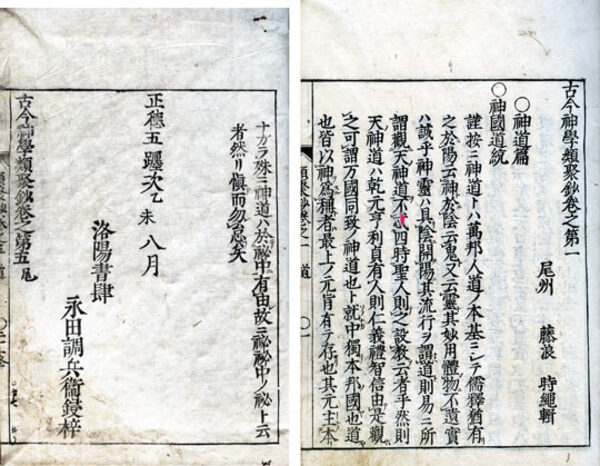 古今神學類聚鈔卷之第一
尾州 藤浪 時繩輯
〇神道篇
〇神國道統
謹按ニ神道トハ萬邦人道ノ本基ニシテ儒釋猶有
之於陽云神於陰云鬼又云靈其妙用體物不遺實
ハ誠乎神靈ハ具陰開陽其流行ヲ謂道則易ニ所
謂觀天神道不忒四時聖人則之設教云者乎然則
天神道ハ乾元亨利貞有人則仁義禮智信由是觀
之可謂万國同致ノ神道也ト就中獨本那國也道
也皆以神爲種者最上ノ元旨有テ存也其元主本
ナガラ殊ニ神道ハ於祕中有由故ニ祕祕中ノ祕ト云
者然リ愼而勿怠矣
正德五躔次乙未八月
洛陽書肆
永田調兵衞鋟梓
古今神學類聚鈔卷之第五尾